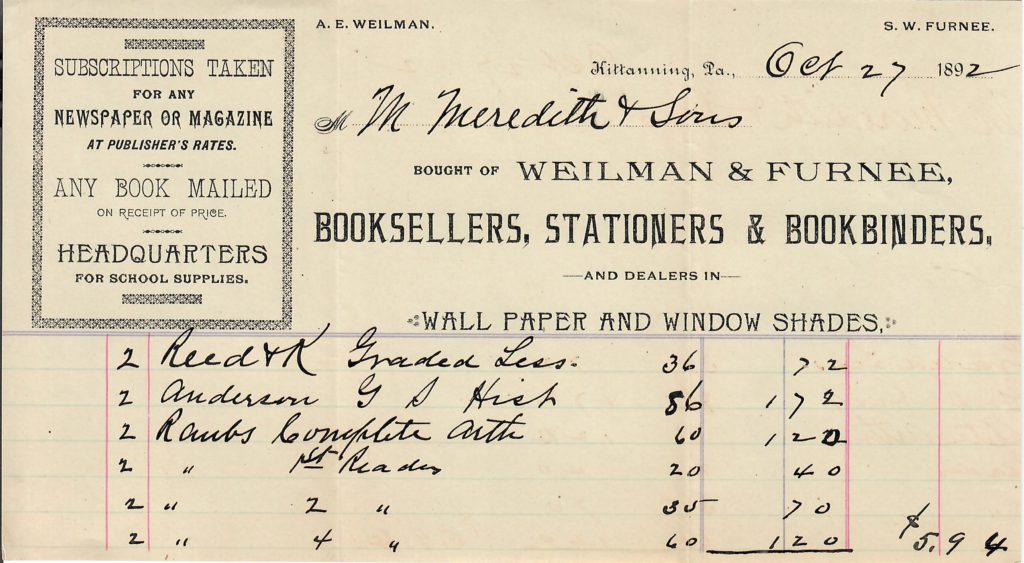 A. E. WEILMAN.
S. W. FURNEE.
SUBSCRIPTIONS TAKEN
FOR ANY
NEWSPAPER OR MAGAZINE
AT PUBLISHER'S RATES.
ANY BOOK MAILED
ON RECEIPT OF PRICE.
HEADQUARTERS
FOR SCHOOL SUPPLIES.
Kittanning, Pa., Oct 27 1892
M M Meredith & Sons
BOUGHT OF WEILMAN & FURNEE,
BOOKSELLERS, STATIONERS & BOOKBINDERS,
AND DEALERS IN
WALL PAPER AND WINDOW SHADES,
2 Reed & K Graded Less. 36 72
2 Anderson G S Hist 86 172
2 Raubs Complete Arth 60 120
2 " 1st Reader 20 40
2 " 2 " 35 70
2 " 4 " 60 120 $5.94